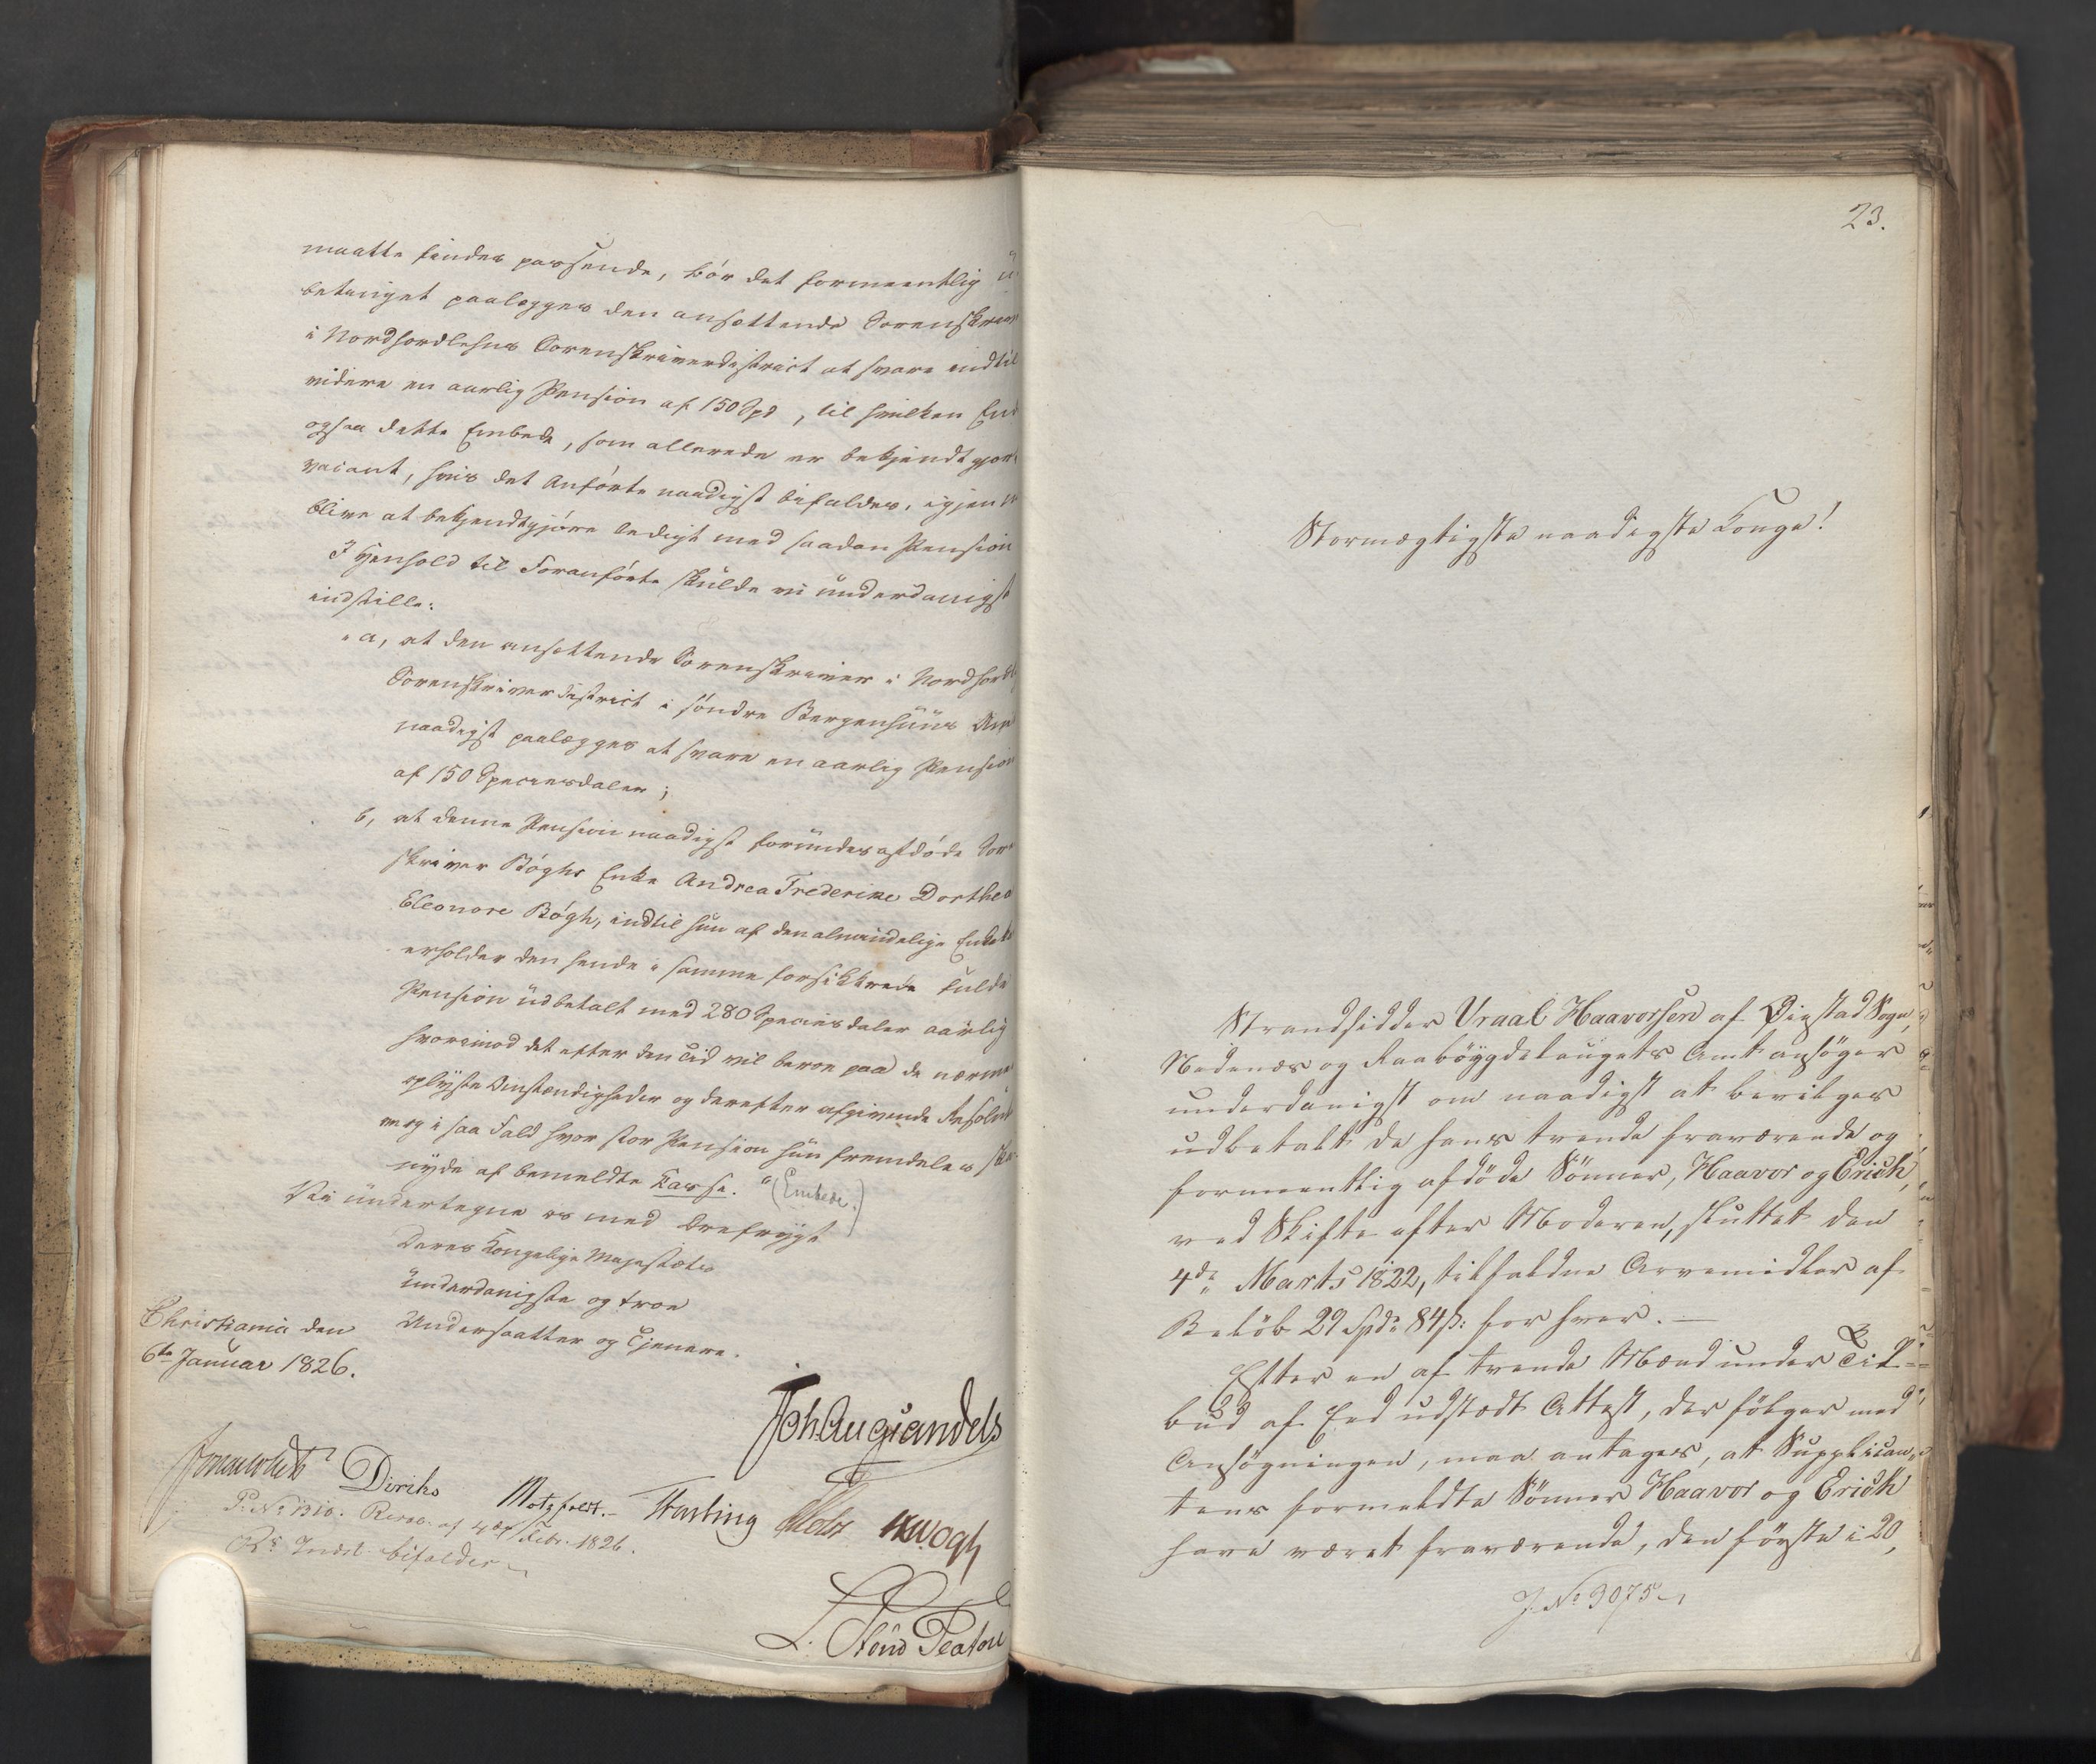 maatte findes passende, bør det formeentlig u-
betinget paalægges den ansættende Sorenskriver
i Nordhordlehns Sorenskriverdistrict at svare indtil
videre en aarlig Pension af 150 Spd, til hvilken End
ogsaa dette Embede, som allerede er bekjendtgjort
vacant, hvis det Anførte naadigst bifaldes, igjen
blive at bekjendtgjøre ledigt med saadan Pension
I Henhold til Foranførte skulde vi underdanigst
indstille:
"a, at den ansættende Sorenskriver i Nordhordl
Sorenskriverdistrict i søndre Bergenhuus Amt
naadigst paalægges at svare en aarlig Pension
af 150 Speciesdaler;
b, at denne Pension naadigst forundes afdøde Soren
skriver Bøghs Enke Andrea Frederike Dorthea
Eleonore Bøgh, indtil hun af den almindelige Enke
erholder den hende i samme forsikkrede fulde
Pension udbetalt med 280 Speciesdaler aarlig
hvorimod det efter den Tid vil beroe paa de nærme
oplyste Omstændigheder og derefter afgivende Resolut
om og i saa Fald hvor stor Pension hun fremdeles skal
nyde af bemeldte Kasse." (Embede.)
Vi undertegne os med Ærefrygt
Deres Kongelige Majestæts
underdanigste og troe
Undersaatter og Tjenere.
Christiania den
6te Januar 1826.
Joh. Aug. Sandels
Diriks Motzfeldt. Fasting
P. No 1310. Resol. af 4de Febr. 1826.
Rs Indst. bifaldes
23.
Stormægtigste naadigste Konge!
Strandsidder Vraal Haavorsen af Øiestad Sogn,
Nedenæs og Raabøygdelaugets Amt ansøger
underdanigst om naadigst at bevilges
udbetalt de hans tvende fraværende og
formeentlig afdøde Sønner, Haavor og Erich,
ved Skifte efter Moderen, sluttet den
4de Marts 1822, tilfaldne Arvemidler af
Beløb 29 Spd 84 s: for hver. —
Efter en af tvende Mænd under Til-
bud af Eed udstædt Attest, der følger med
Ansøgningen, maa antages, at Supplican-
tens formeldte Sønner Haavor og Erich
have været fraværende, den første i 20,
J. No 3075